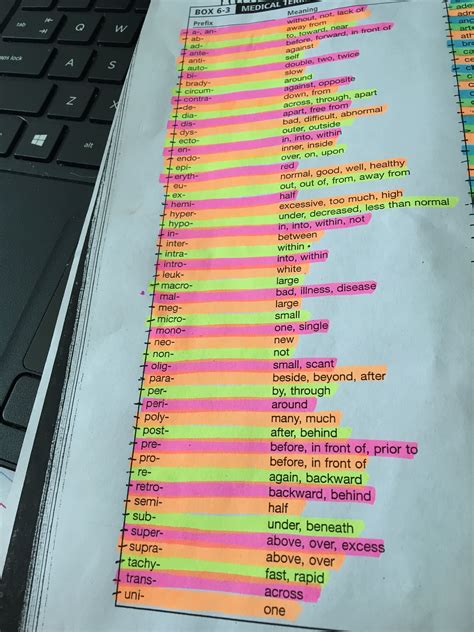 BOX 6-3 MEDICAL TERM
Prefix Meaning
a-, an- without, not, lack of
ab- away from
ad- to, toward, near
ante- before, forward, in front of
anti- against
auto- self
bi- double, two, twice
brady- slow
circum- around
contra- against, opposite
de- down, from
dia- across, through, apart
dis- apart, free from
dys- bad, difficult, abnormal
ecto- outer, outside
en- in, into, within
endo- inner, inside
epi- over, on, upon
eryth- red
eu- normal, good, well, healthy
ex- out, out of, from, away from
hemi- half
hyper- excessive, too much, high
hypo- under, decreased, less than normal
in- in, into, within, not
inter- between
intra- within
intro- into, within
leuk- white
macro- large
mal- bad, illness, disease
meg- large
micro- small
mono- one, single
neo- new
non- not
olig- small, scant
para- beside, beyond, after
per- by, through
peri- around
poly- many, much
post- after, behind
pre- before, in front of, prior to
pro- before, in front of
re- again, backward
retro- backward, behind
semi- half
sub- under, beneath
super- above, over, excess
supra- above, over
tachy- fast, rapid
trans- across
uni- one
aps lock
A
S
Z
X
alt